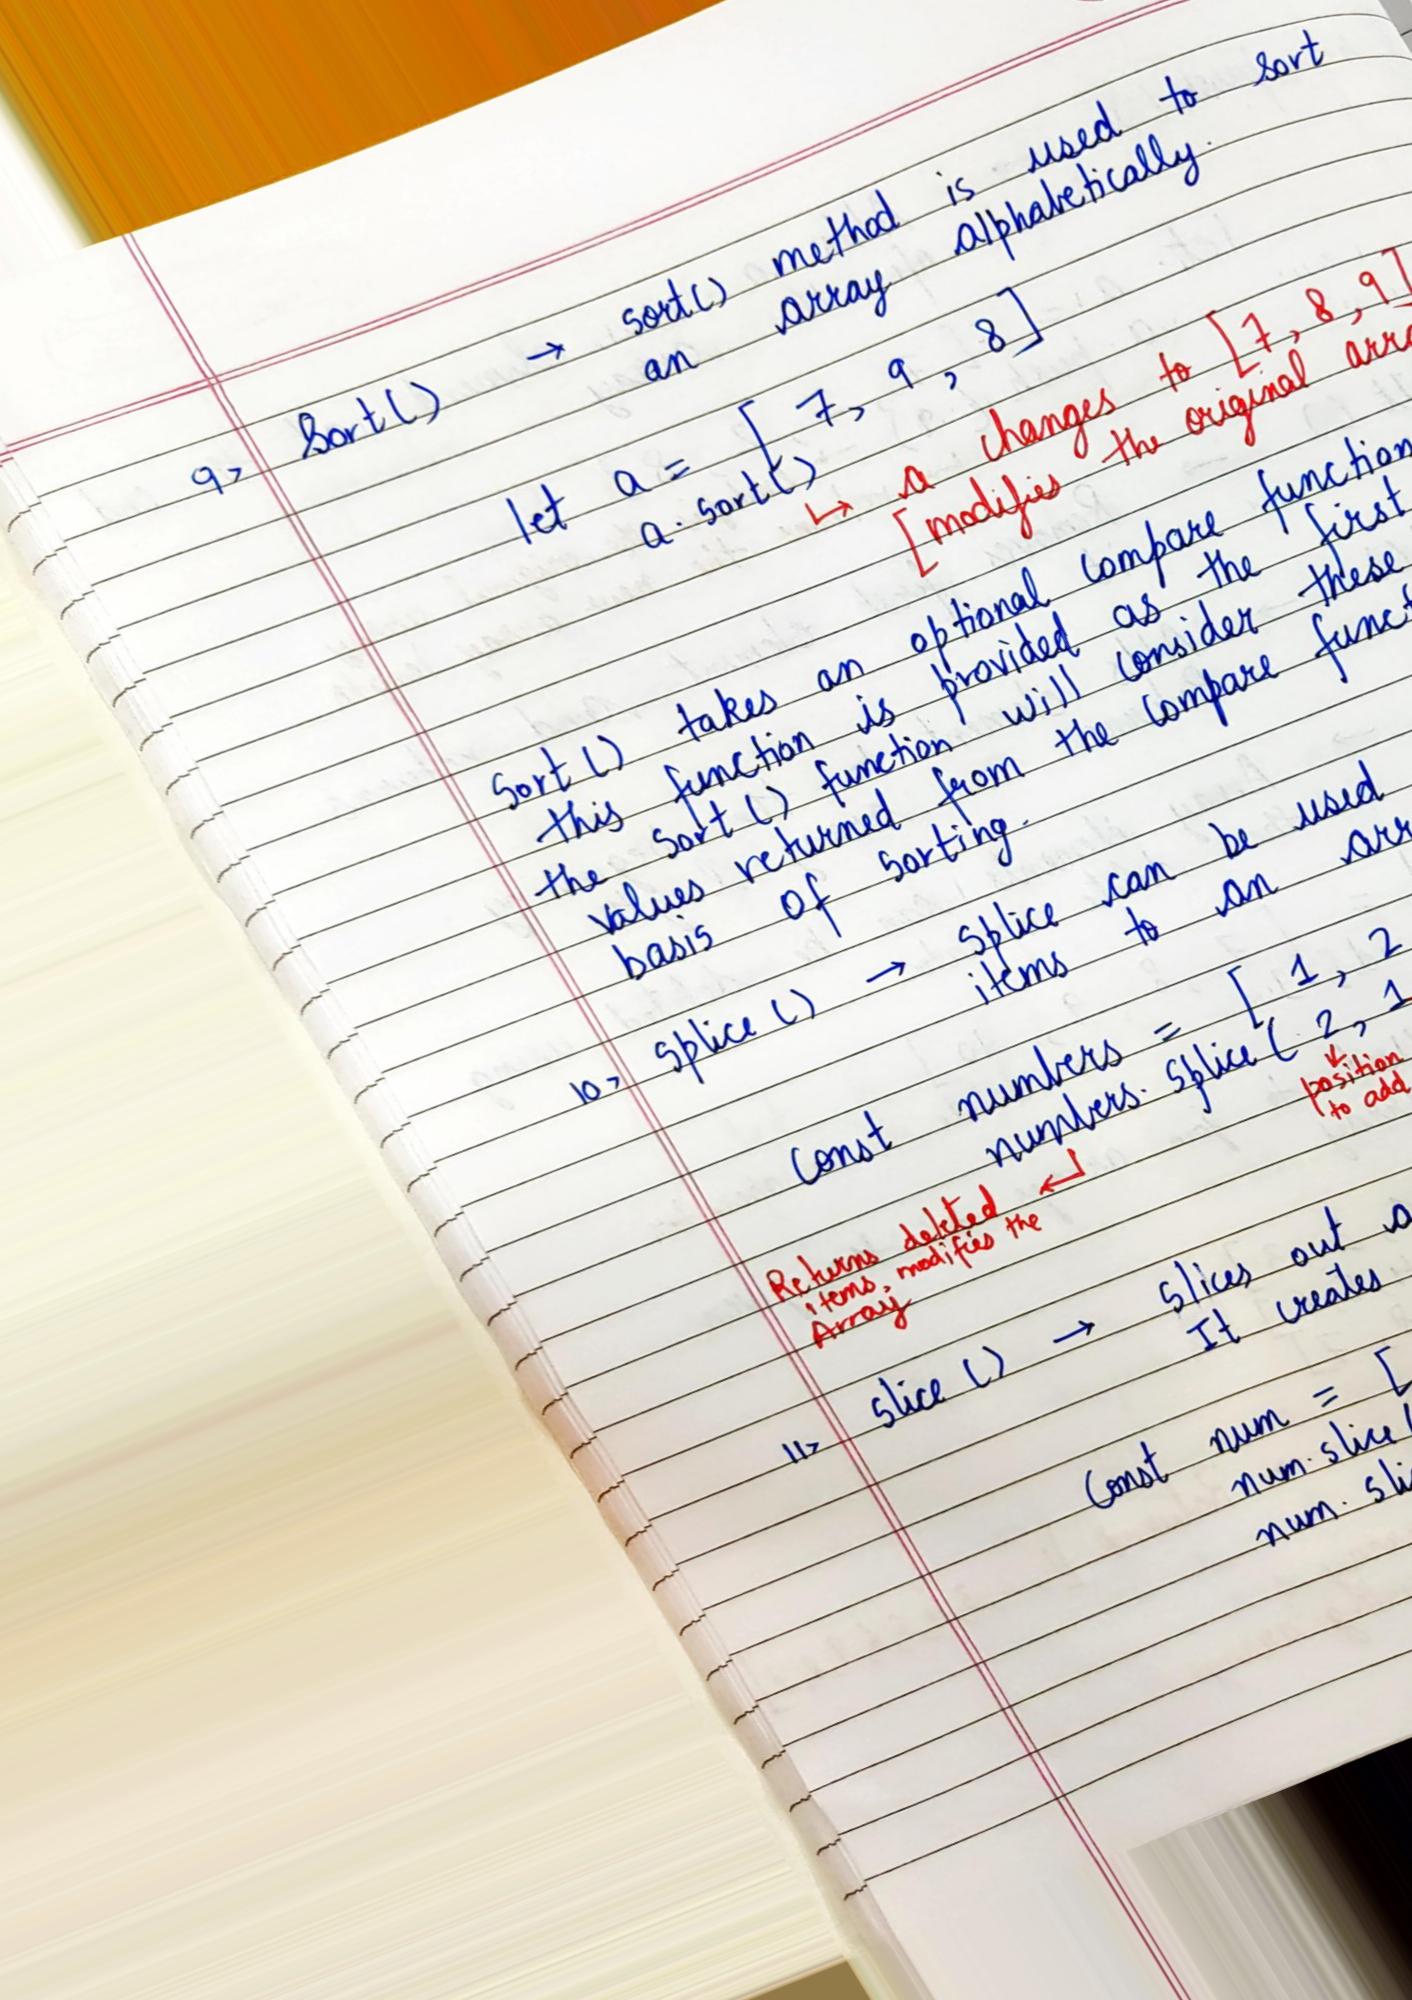 9> Sort() → sort() method is used to sort
an array alphabetically.
let a = [ 7, 9, 8 ]
a. sort()
↳ a changes to [7, 8, 9]
[modifies the original
Sort() takes an optional compare function
this function is provided as the first
the sort() function will consider these
values returned from the compare
basis of sorting.
10> splice () → splice can be used
items to an
Const numbers = [ 1, 2
numbers. splice ( 2, 1
position
to add
Returns deleted
items, modifies the
Array
11> slice () → slices out a
It creates
Const num = [
num. slice (
num.